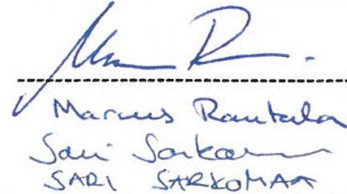 Marcus Rantala
Sari Sarkomaa
SARI SARKOMAA